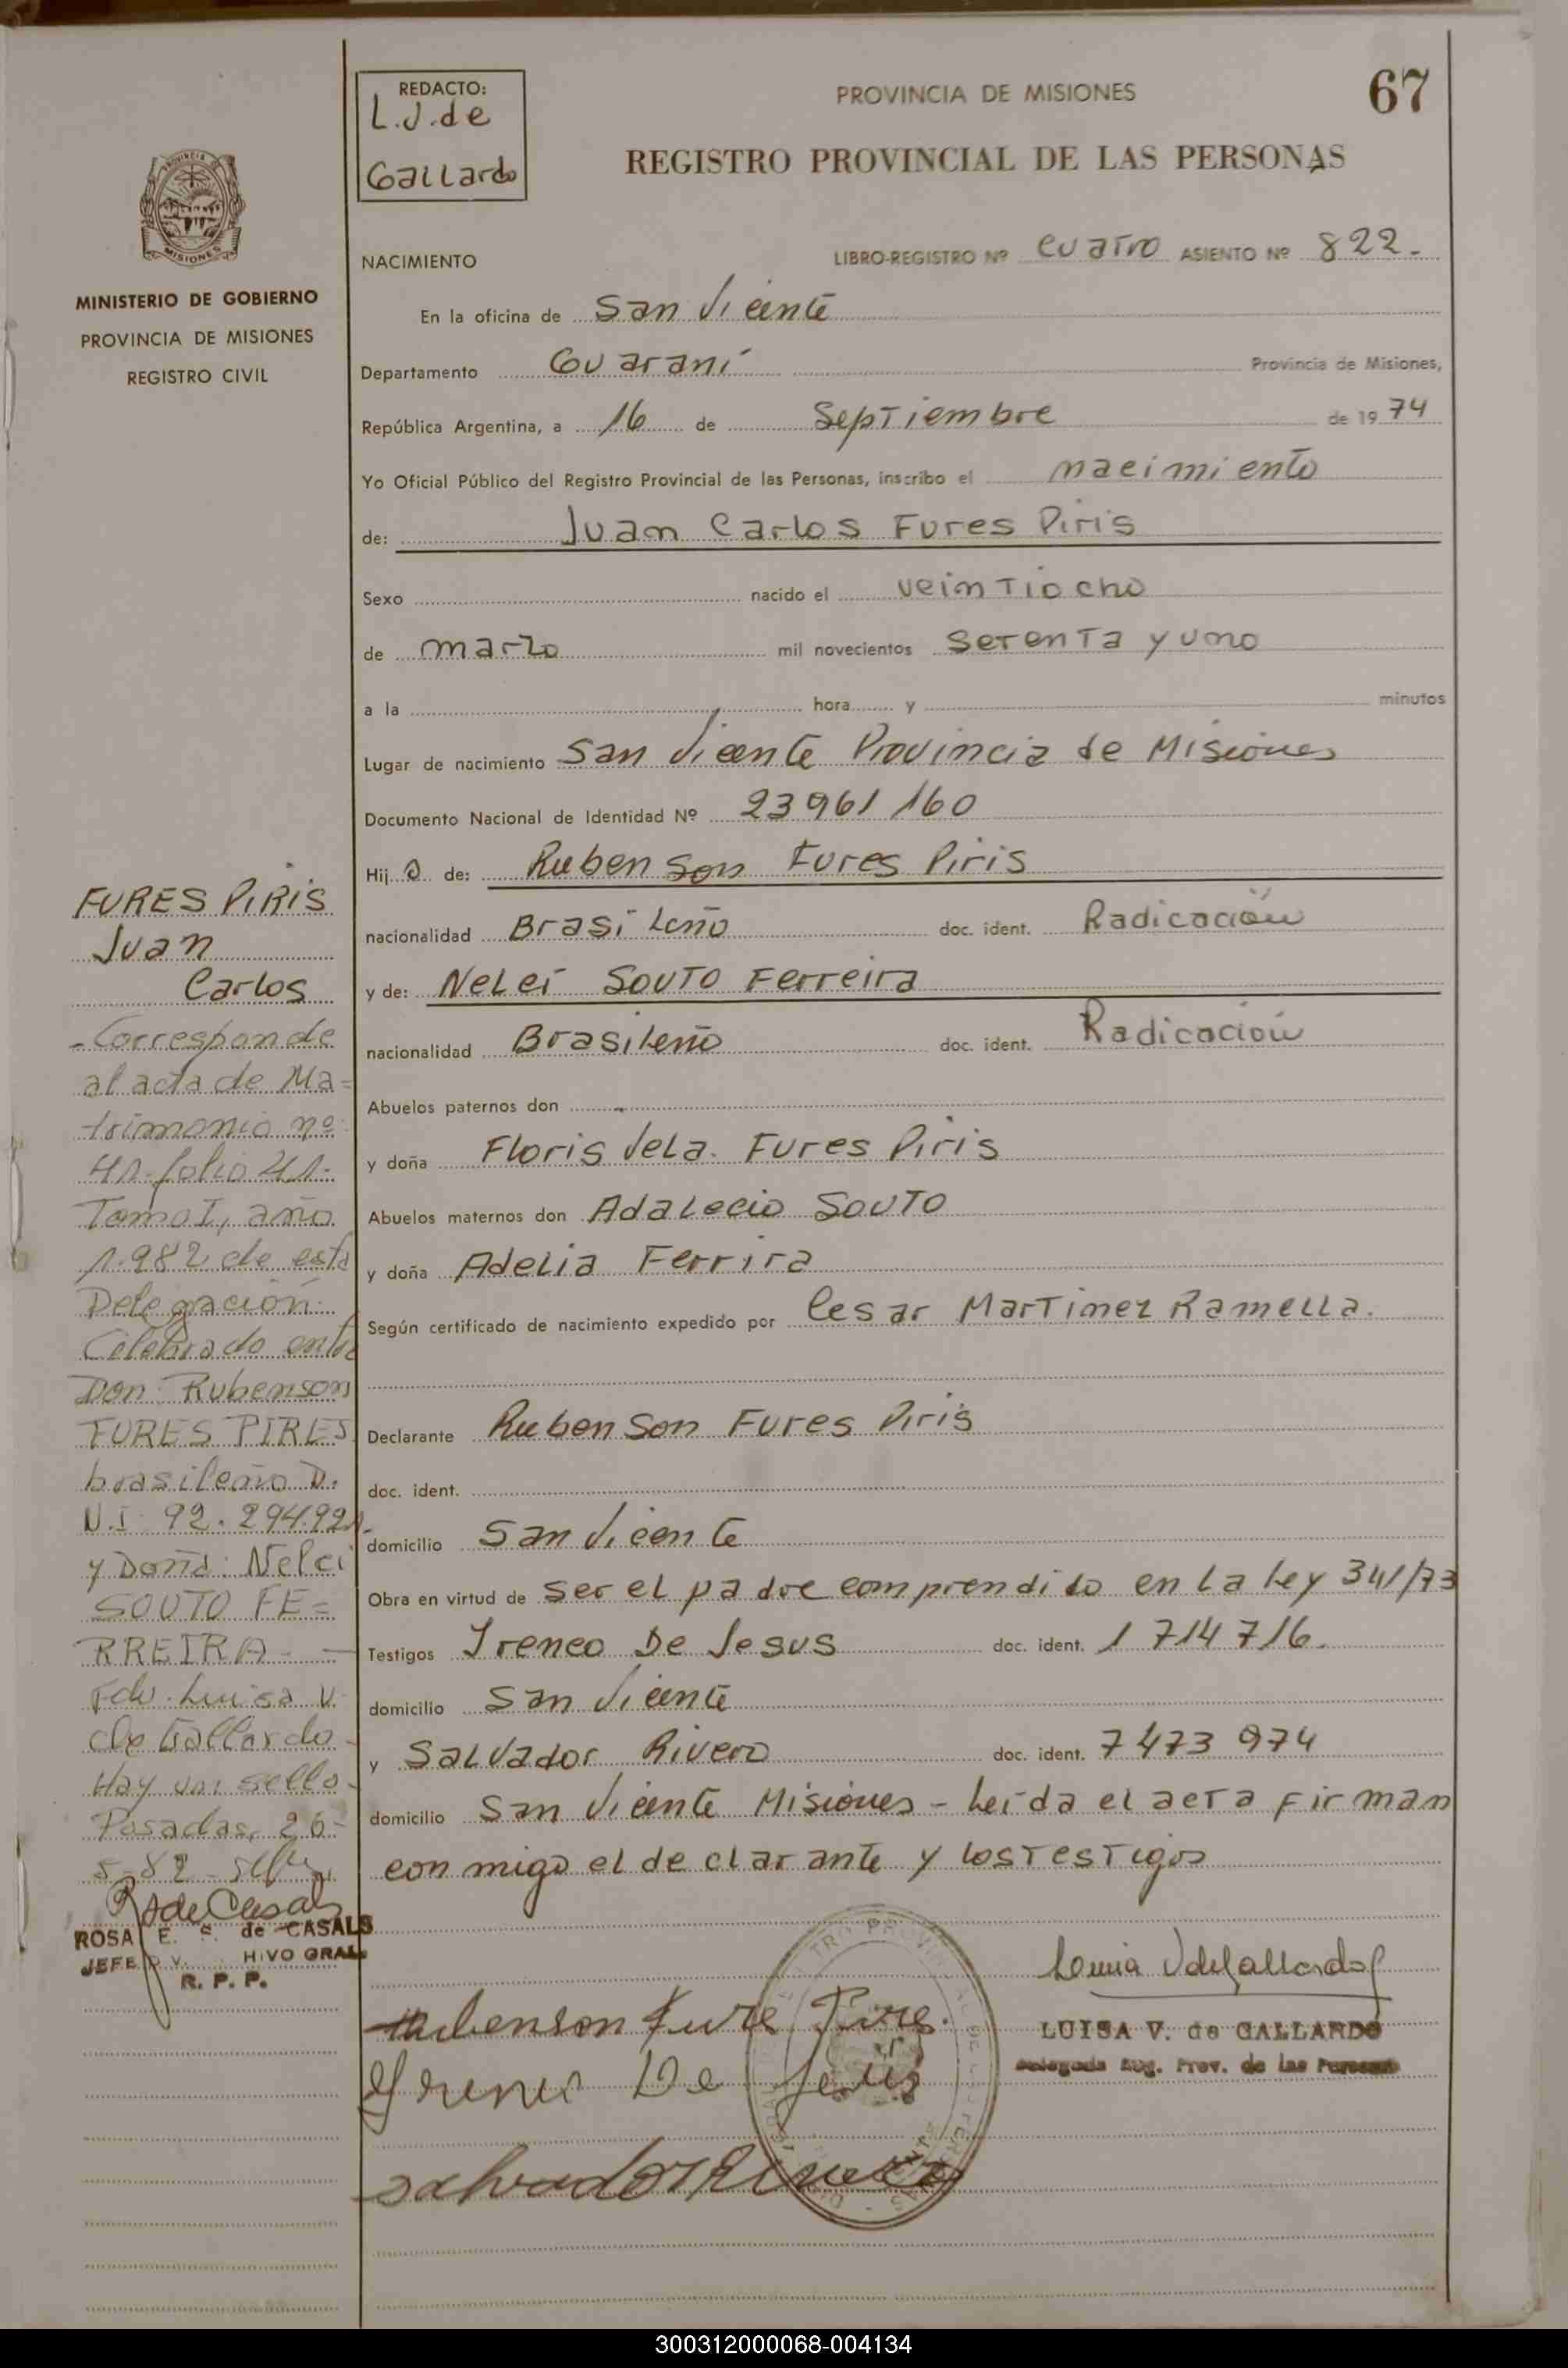 REDACTO:
L.J.de
Gallardo
PROVINCIA DE MISIONES
67
REGISTRO PROVINCIAL DE LAS PERSONAS
PROVINCIA
MISIONES
MINISTERIO DE GOBIERNO
PROVINCIA DE MISIONES
REGISTRO CIVIL
NACIMIENTO
LIBRO-REGISTRO Nº cuatro ASIENTO Nº 822.-
En la oficina de San Vicente
Departamento Guaraní Provincia de Misiones,
República Argentina, a 16 de Septiembre de 1974
Yo Oficial Público del Registro Provincial de las Personas, inscribo el nacimiento
de: Juan Carlos Fures Piris
Sexo nacido el veintiocho
de marzo mil novecientos setenta y uno
a la hora y minutos
Lugar de nacimiento San Vicente Provincia de Misiones
Documento Nacional de Identidad Nº 23961160
Hijo de: Rubenson Fures Piris
nacionalidad Brasileño doc. ident. Radicación
y de: Nelci Souto Ferreira
nacionalidad Brasileño doc. ident. Radicación
Abuelos paternos don
y doña Floris Vela. Fures Piris
Abuelos maternos don Adalecio Souto
y doña Adelia Ferrira
Según certificado de nacimiento expedido por Cesar Martinez Ramella.
Declarante Rubenson Fures Piris
doc. ident.
domicilio San Vicente
Obra en virtud de ser el padre comprendido en la ley 341/73
Testigos Ireneo De Jesus doc. ident. 1714716.
domicilio San Vicente
y Salvador Rivero doc. ident. 7473974
domicilio San Vicente Misiones - Leída el acta firman
conmigo el declarante y los testigos
FURES PIRIS
Juan
Carlos
-Corresponde
al acta de Ma=
trimonio nº
41-folio 41-
Tomo I, año
1.982 de esta
Delegación.
Celebrado entre
Don: Rubenson
FURES PIRES
brasileño D.
N.I. 92.294.921.
y Doña: Nelci
SOUTO FE=
RREIRA.-
Fdo. Luisa V.
de Gallardo-
Hay un sello-
Posadas, 26-
5-82-
R de Casals
ROSA E. S. de CASALS
JEFE HIVO GRAL.
R. P. P.
Rubenson Fure Pires.
Ireneo De Jesus
Salvador Rivero
Luisa V de Gallardo
LUISA V. de GALLARDO
Delegada Reg. Prov. de las Personas
300312000068-004134